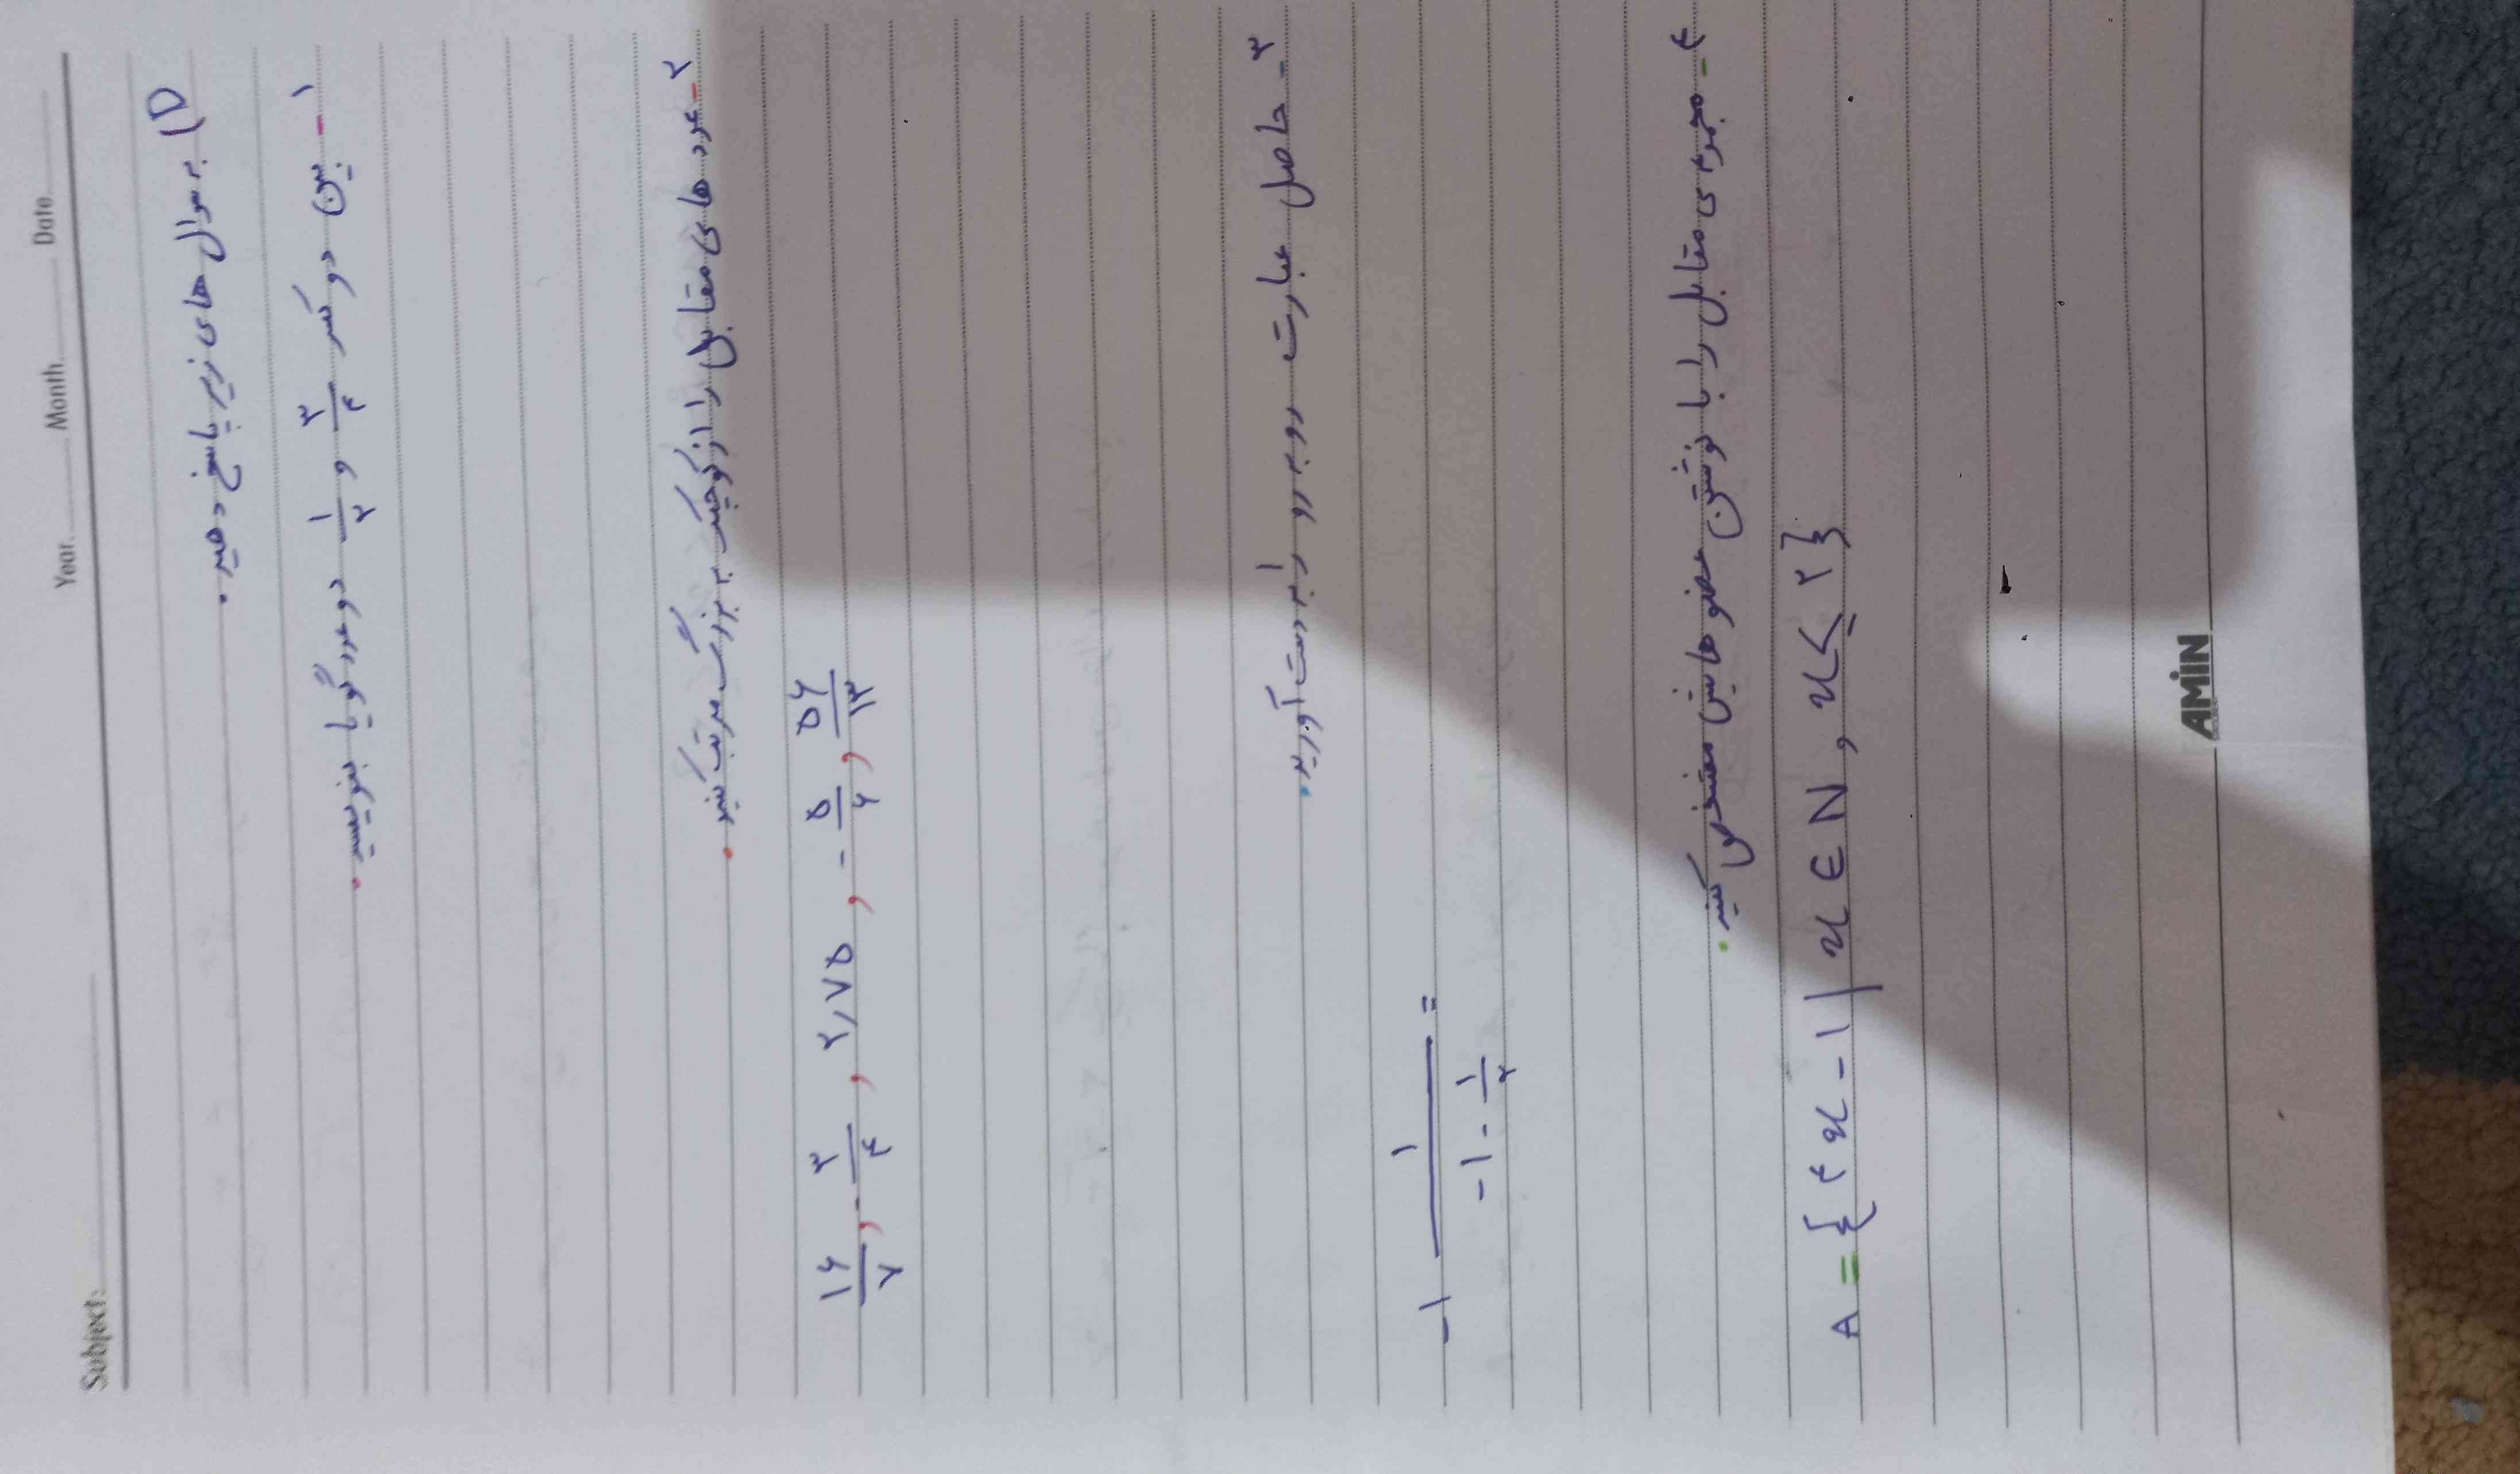 Subject: Year. Month. Date.
D) به سوال های زیر پاسخ دهید.
۱- بین دو کسر ۳/۴ و ۱/۲ دو عدد گویا بنویسید.
۲- عدد های مقابل را از کوچک به بزرگ مرتب کنید.
۱۶/۷ , -۳/۴ , ۲,۷۵ , -۵/۶ , ۵۶/۱۳
۳- حاصل عبارت روبه رو را بدست آورید.
-۱ ۱/(-۱-۱/۲) =
۴- مجموعه ی مقابل را با نوشتن عضو هایش مشخص کنید.
A = {۴x - ۱ | x ∈ N , x ≤ ۲}
AMiN